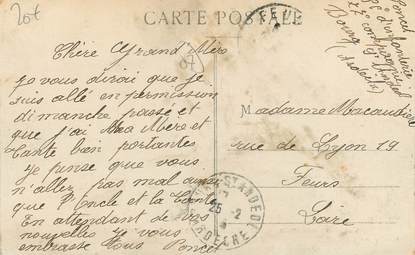 20f
CARTE POSTALE
FEURS
Poncet
d'infanterie
7e compagnie
Bourg
07
Chère Grand Mère
je vous dirai que je
suis allé en permission
dimanche passé et
que j'ai Ma Mère et
Tante bien portantes
Je pense que vous
n'allez pas mal ainsi
que l'Oncle et la Tante
En attendant de vos
nouvelles je vous
embrasse tous Poncet
Madame Macaudier
rue de Lyon 19
Feurs
Loire
25 -2
ARDECHE